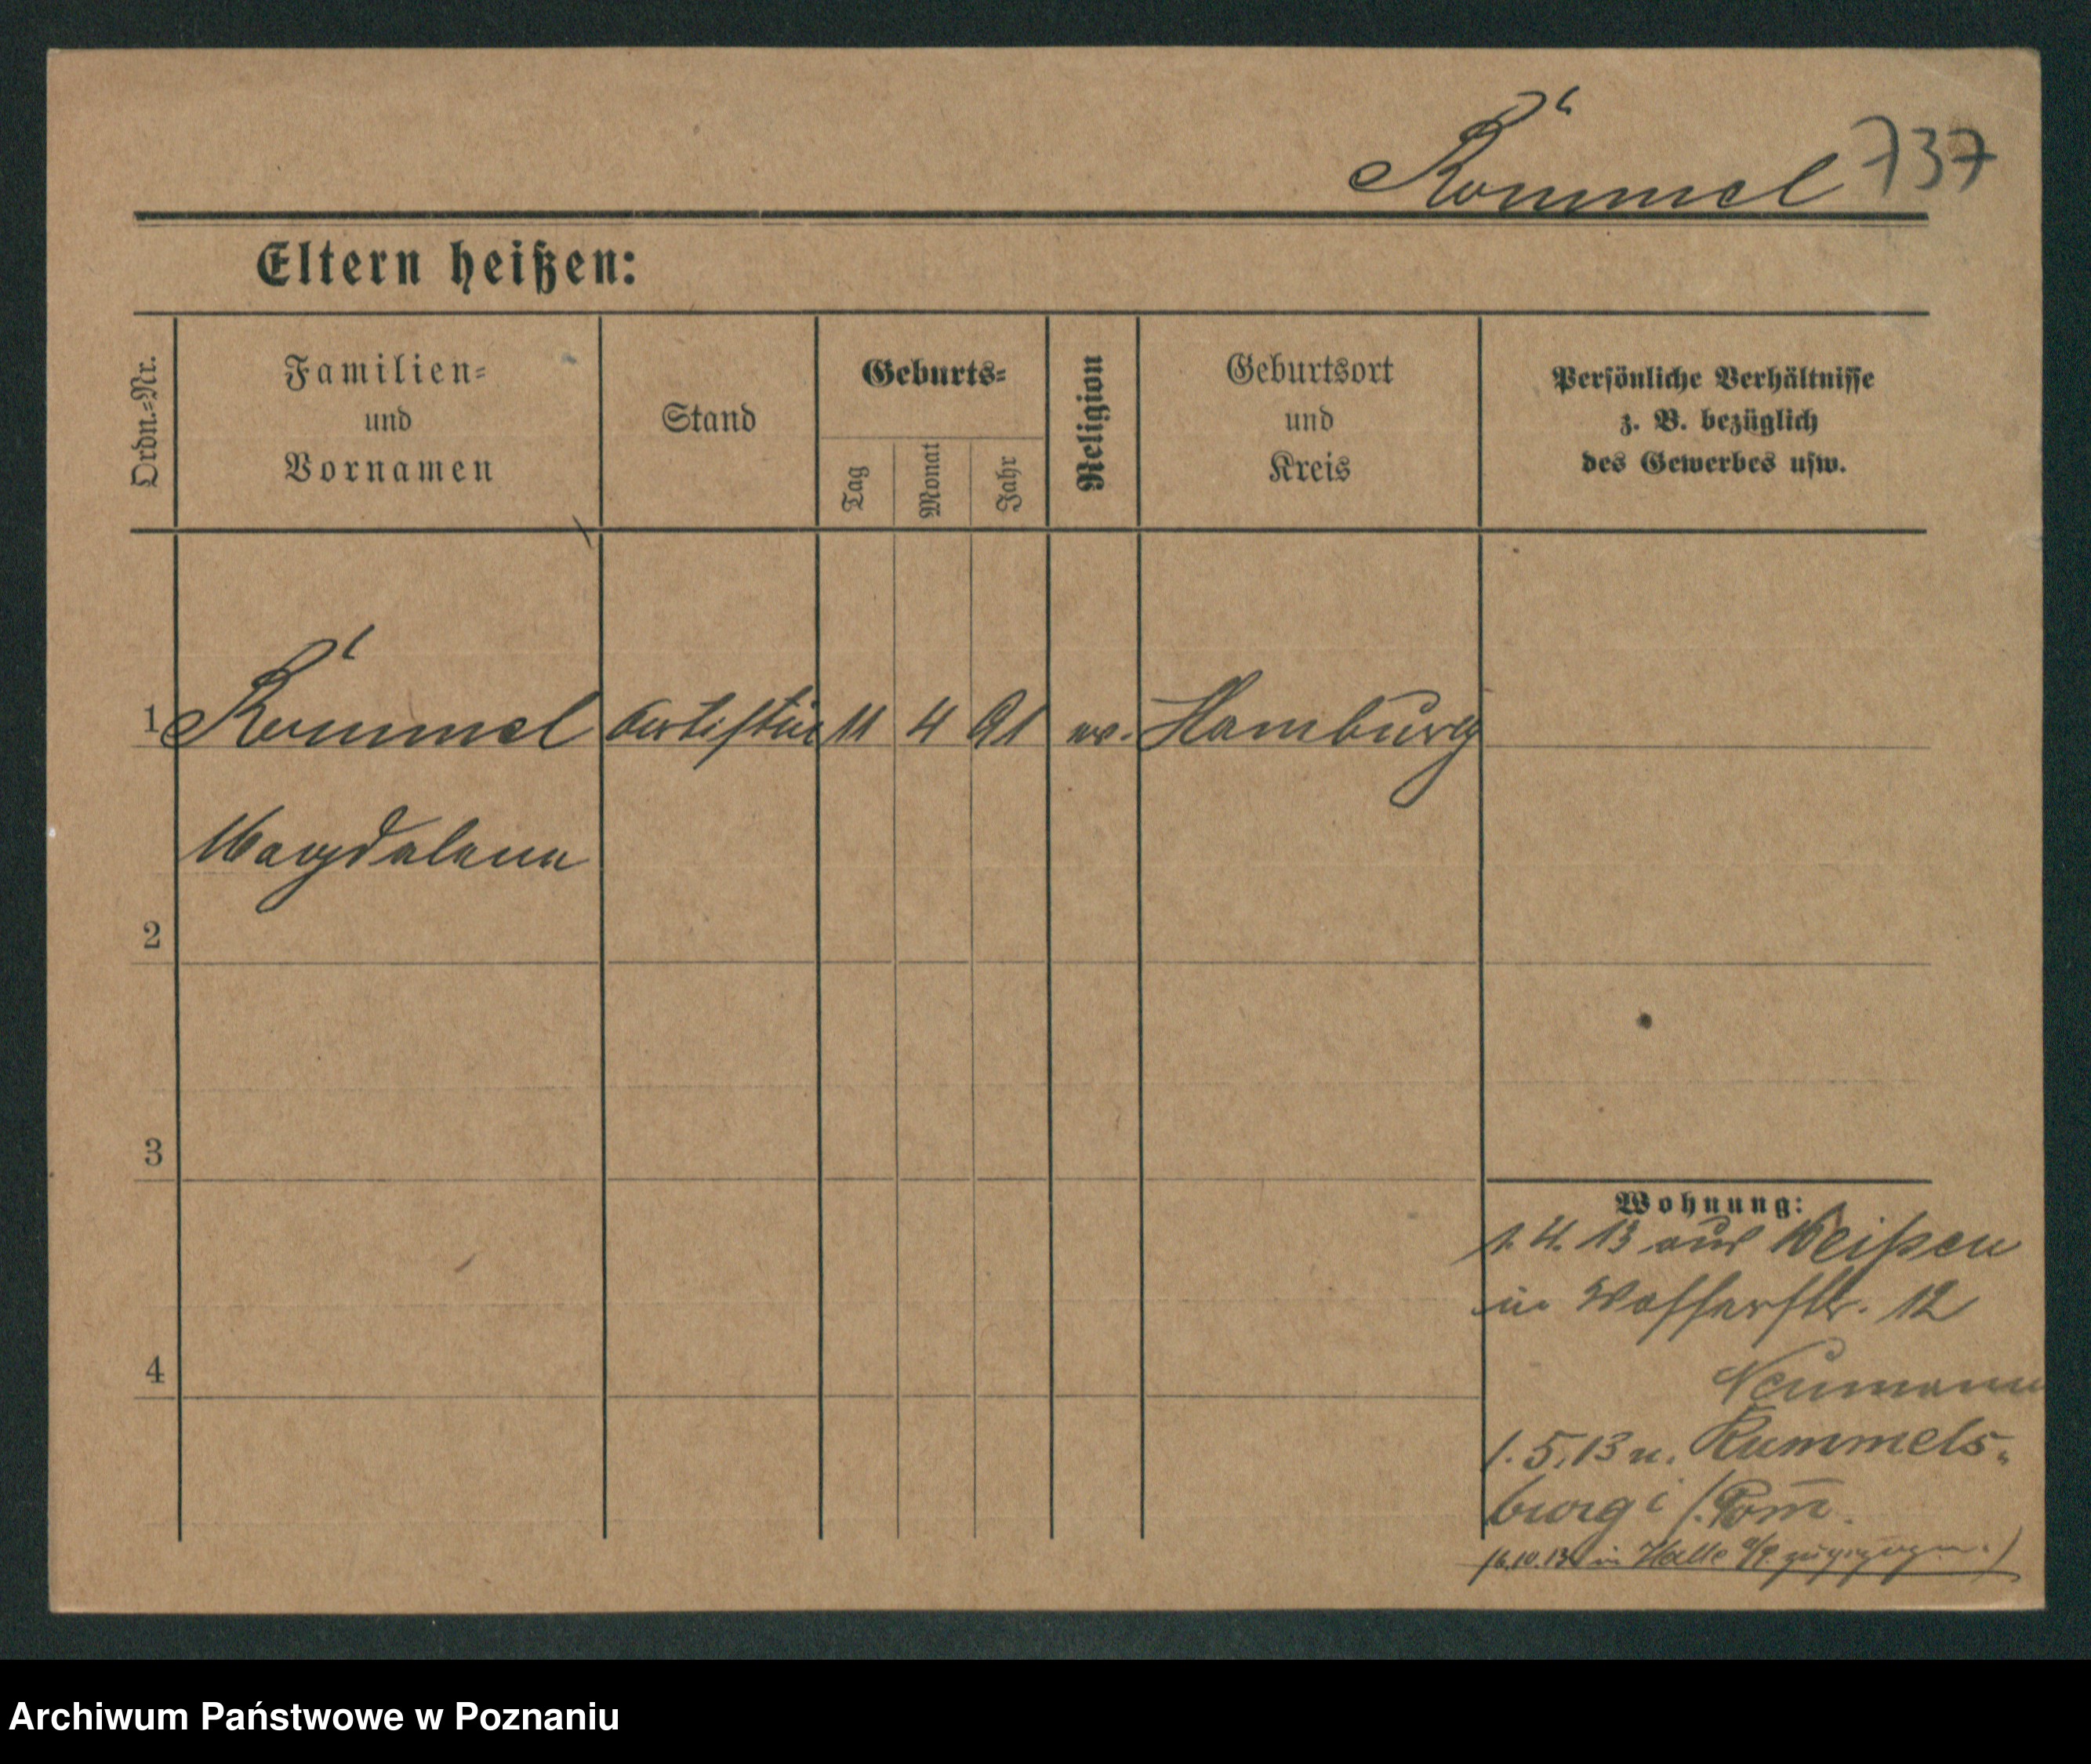 Römmel 737
Eltern heißen:
Ordn.=Nr.
Familien=
und
Vornamen
Stand
Geburts=
Tag
Monat
Jahr
Religion
Geburtsort
und
Kreis
Persönliche Verhältnisse
z. B. bezüglich
des Gewerbes usw.
1 Römmel Artistin 11 4 91 ev. Hamburg
Magdalena
2
3
4
Wohnung:
1.4.13 aus Meißen
in Wasserstr. 12
Neumann
1.5.13 n. Rummels-
burg i/Pom.
16.10.13 in Halle zugezogen.)
Archiwum Państwowe w Poznaniu